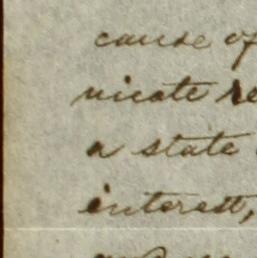 cause of
nicate re
a state
interest,